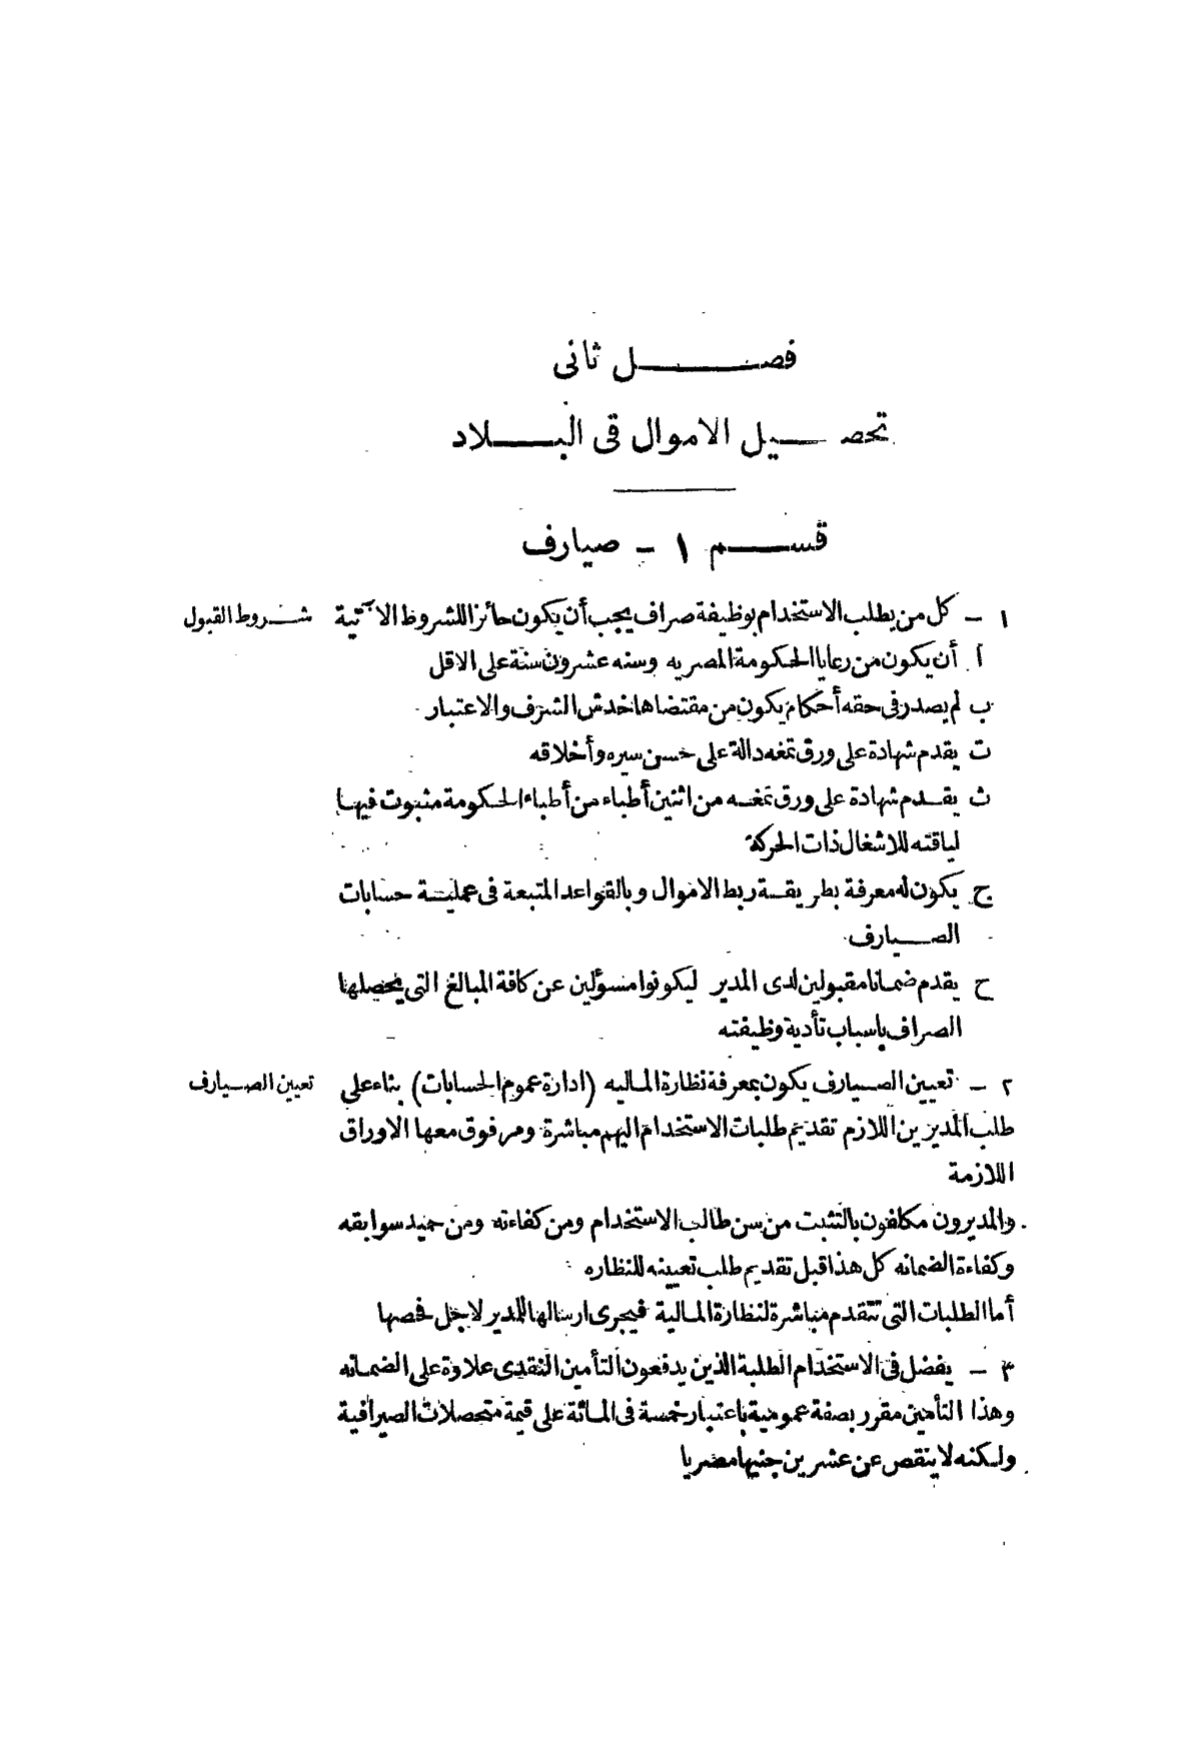 فصل ثانى
تحصيل الاموال فى البلاد
قسم ١ - صيارف
١ - كل من يطلب الاستخدام بوظيفة صراف يجب أن يكون حائزا للشروط الآتية
شروط القبول
أ أن يكون من رعايا الحكومة المصريه وسنه عشرون سنة على الاقل
ب لم يصدر فى حقه أحكام يكون من مقتضاها خدش الشرف والاعتبار
ت يقدم شهادة على ورق تمغه دالة على حسن سيره وأخلاقه
ث يقدم شهادة على ورق تمغه من اثنين أطباء من أطباء الحكومة مثبوت فيها
لياقته للاشغال ذات الحركة
ج يكون له معرفة بطريقة ربط الاموال وبالقواعد المتبعة فى عملية حسابات
الصيارف
ح يقدم ضمانا مقبولين لدى المدير ليكونوا مسؤلين عن كافة المبالغ التى يحصلها
الصراف باسباب تأدية وظيفته
٢ - تعيين الصيارف يكون بمعرفة نظارة الماليه (ادارة عموم الحسابات) بناء على
تعيين الصيارف
طلب المديرين اللازم تقديم طلبات الاستخدام اليهم مباشرة ومرفوق معها الاوراق
اللازمة
والمديرون مكلفون بالتثبت من سن طالب الاستخدام ومن كفاءته ومن حميد سوابقه
وكفاءة الضمانه كل هذا قبل تقديم طلب تعيينه للنظاره
أما الطلبات التى تتقدم مباشرة لنظارة المالية فيجرى ارسالها للمدير لاجل فحصها
٣ - يفضل فى الاستخدام الطلبة الذين يدفعون التأمين النقدى علاوة على الضمانه
وهذا التأمين مقرر بصفة عمومية باعتبار خمسة فى المائة على قيمة متحصلات الصيرافية
ولكنه لا ينقص عن عشرين جنيها مصريا